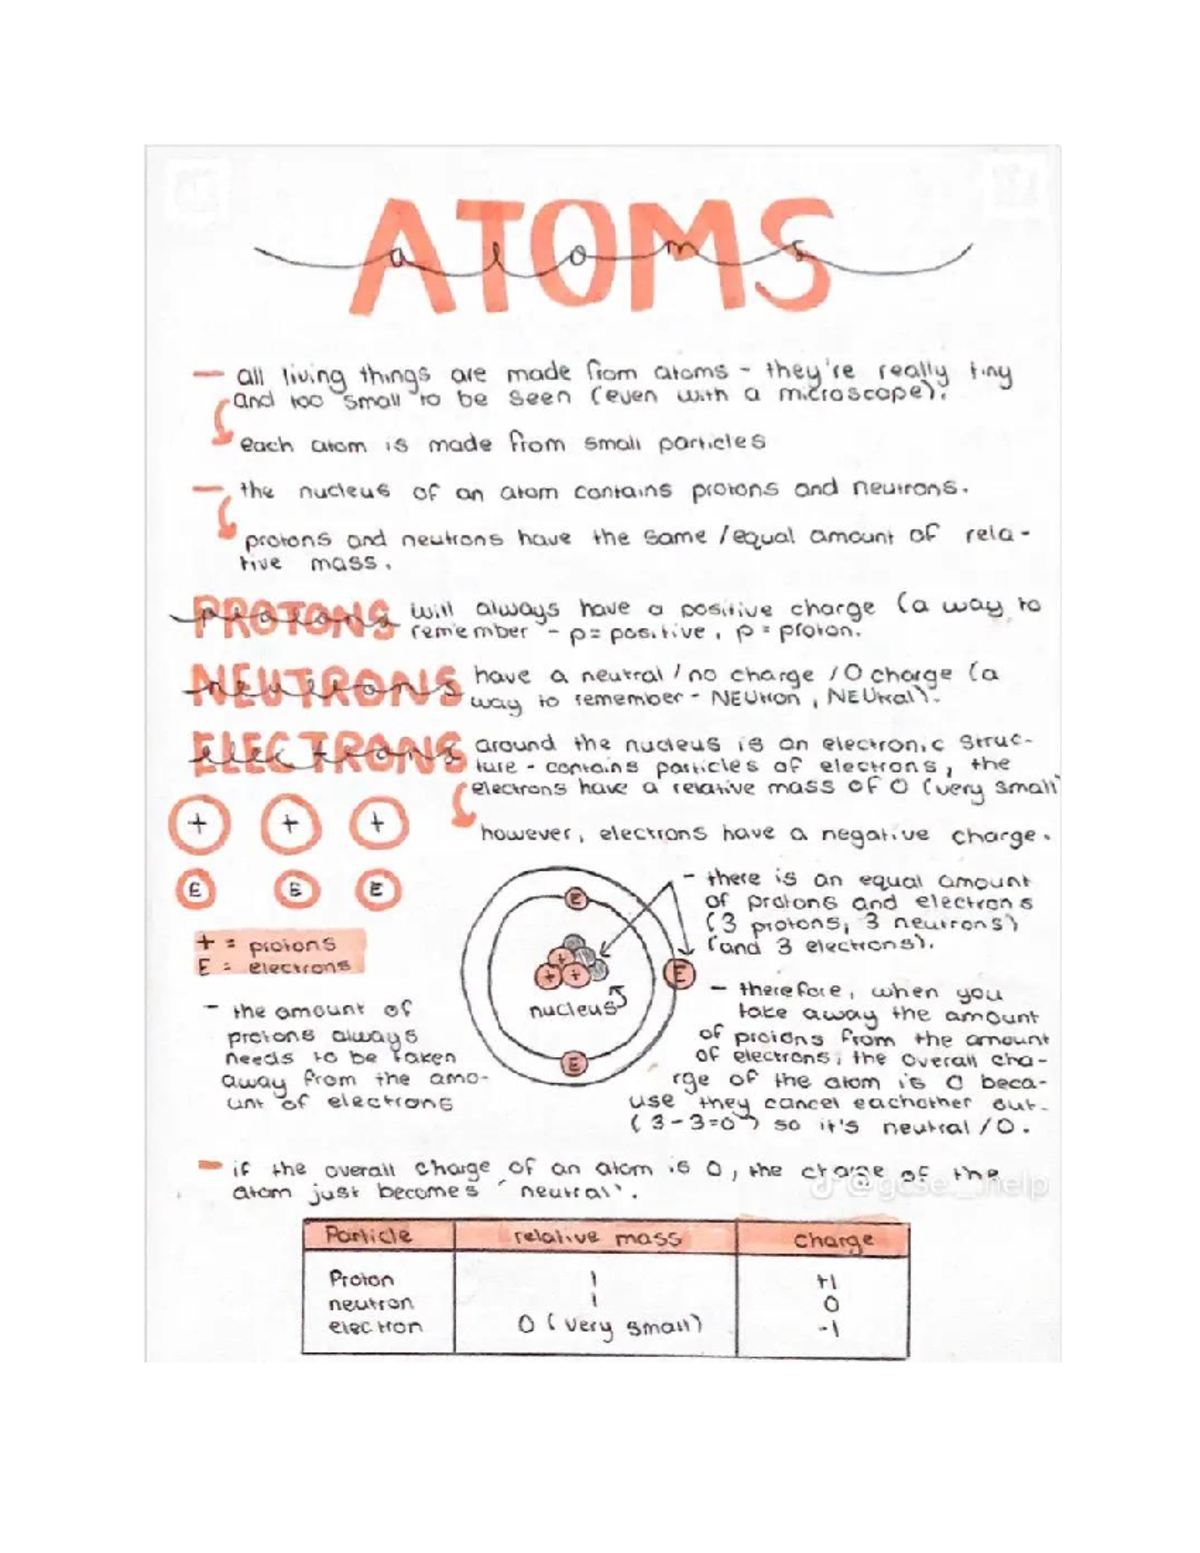 ATOMS
atoms
all living things are made from atoms - they're really tiny
and too small to be seen (even with a microscope).
each atom is made from small particles
the nucleus of an atom contains protons and neutrons.
protons and neutrons have the same / equal amount of rela-
tive mass.
PROTONS will always have a positive charge (a way to
protons
remember - p = positive, p = proton.
NEUTRONS have a neutral / no charge / 0 charge (a
neutrons
way to remember - NEUtron, NEUtral).
ELECTRONS around the nucleus is an electronic struc-
electrons
ture - contains particles of electrons, the
electrons have a relative mass of 0 (very small)
however, electrons have a negative charge.
+ + +
E E E
+ = protons
E = electrons
- the amount of
protons always
needs to be taken
away from the amo-
unt of electrons
E
+
+ +
E
nucleus
E
- there is an equal amount
of protons and electrons
(3 protons, 3 neutrons)
(and 3 electrons).
- therefore, when you
take away the amount
of protons from the amount
of electrons, the overall cha-
rge of the atom is 0 beca-
use they cancel eachother out.
(3-3=0) so it's neutral / 0.
if the overall charge of an atom is 0, the charge of the
atom just becomes 'neutral'.
@gcse._.help
Particle relative mass charge
Proton 1 +1
neutron 1 0
electron 0 (very small) -1